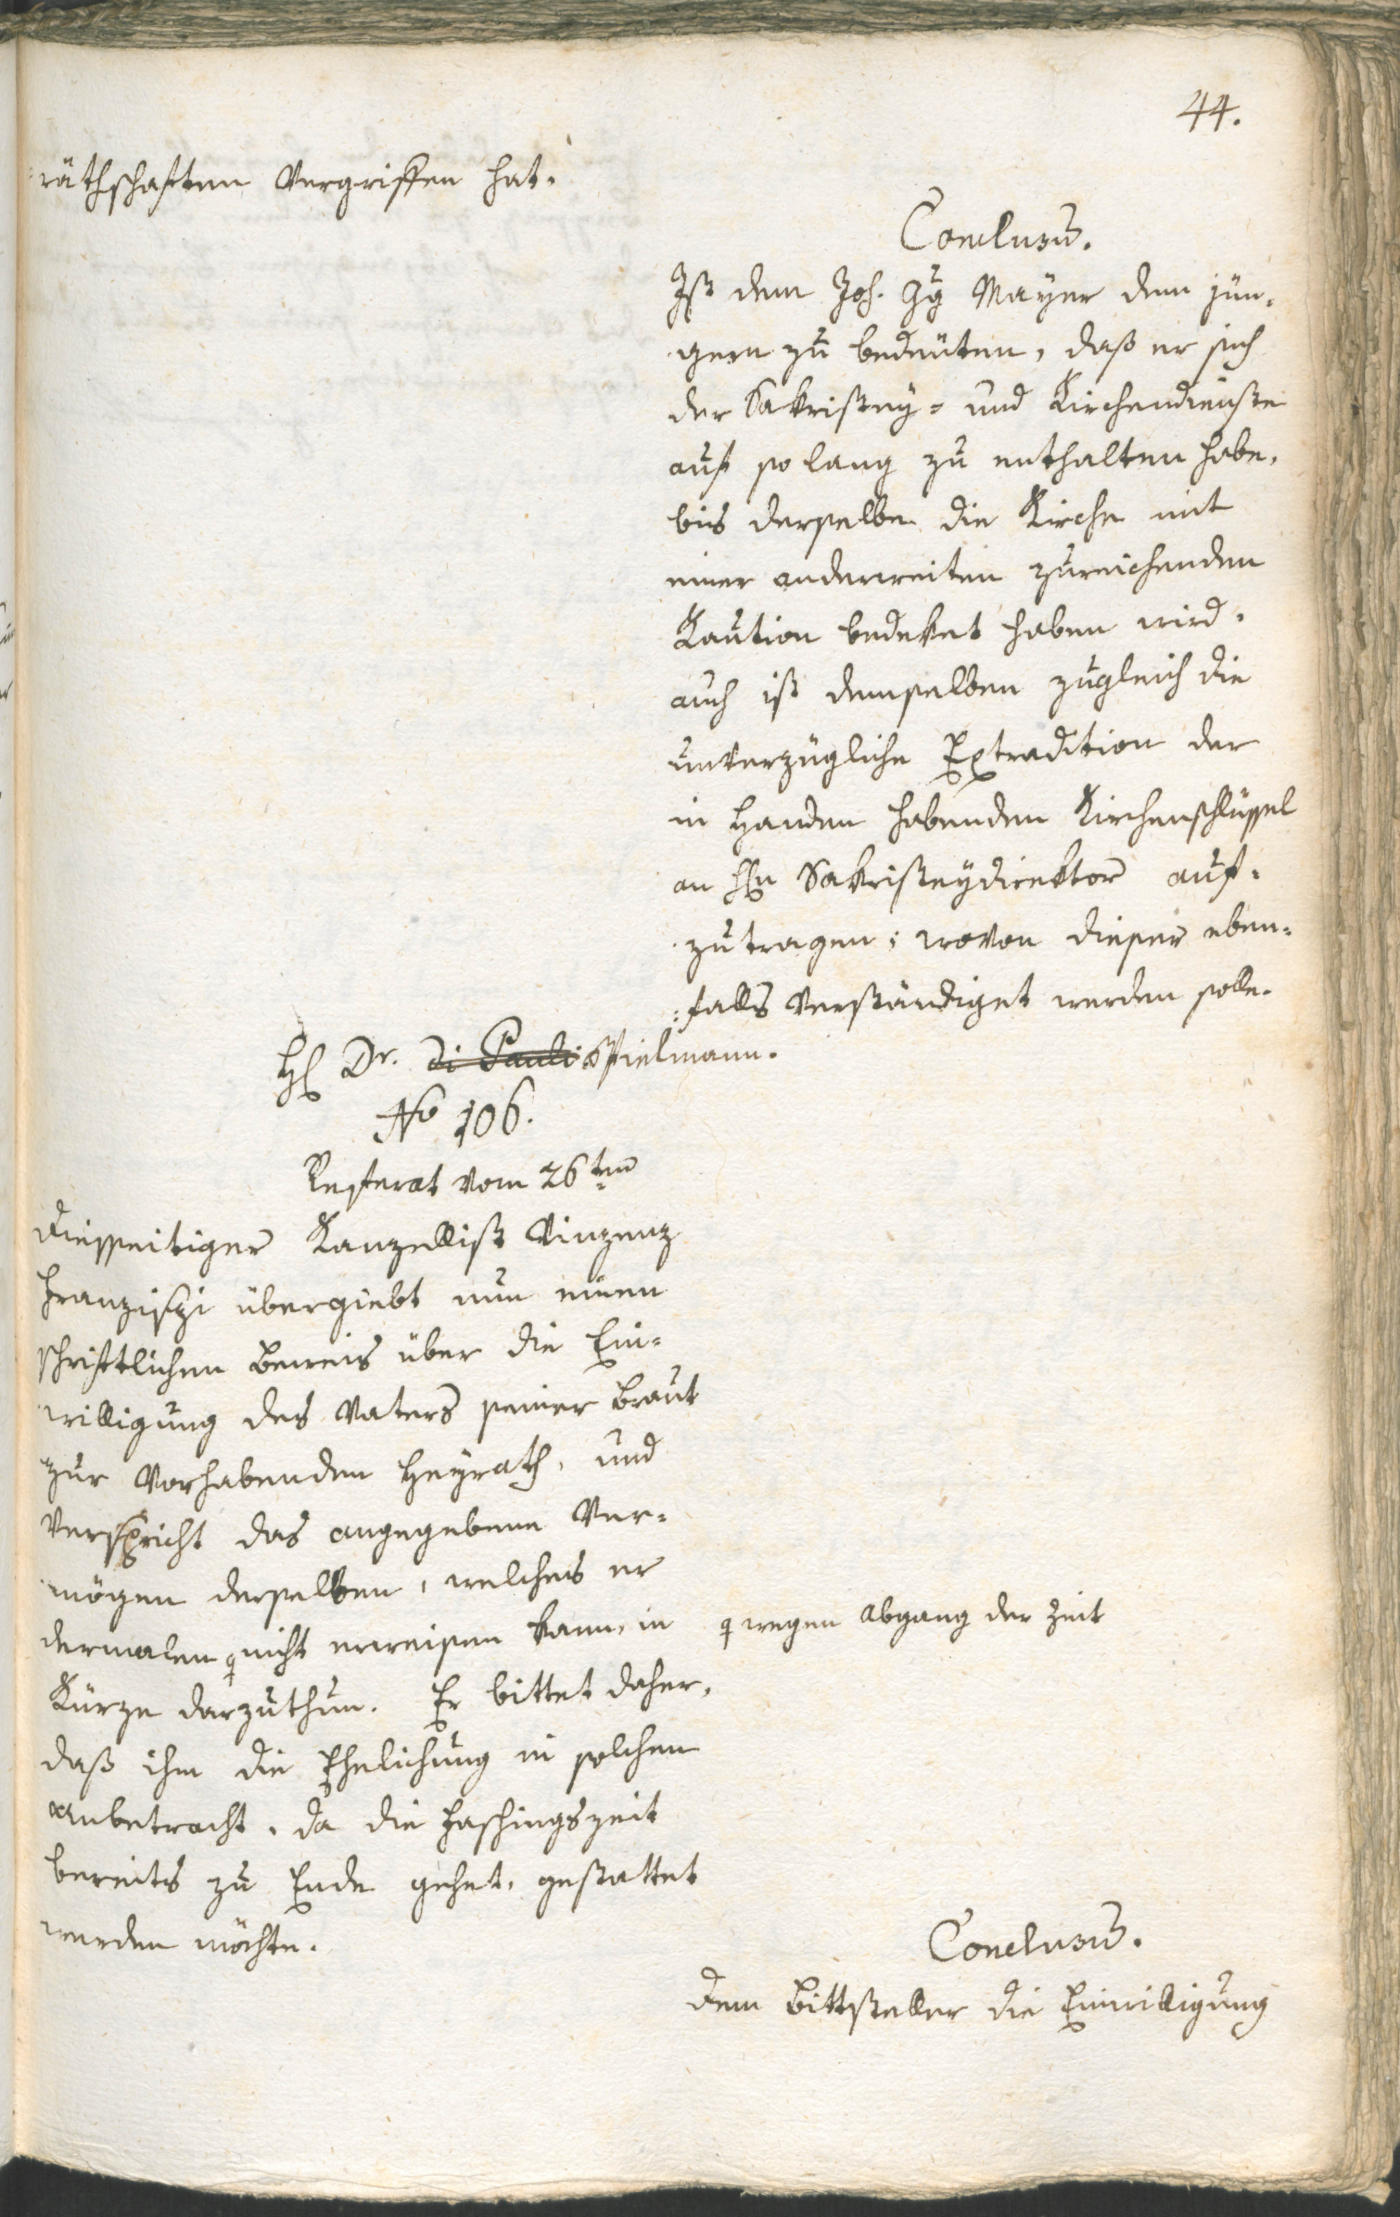 44.
räthschaften vergriffen hat.
Conclusum.
Ist dem Joh. Gg Mayer dem jün-
gern zu bedeuten, daß er sich
der Sakristey- und Kirchendienste
auf so lang zu enthalten habe,
bis derselbe die Kirche mit
einer anderweiten zureichenden
Kaution bedeket haben wird.
auch ist demselben zugleich die
unverzügliche Extradition der
in Handen habenden Kirchenschlüssel
an Hn Sakristeydirektor auf-
zutragen; wovon dieser eben-
falls verständiget werden solle.
H Dr. di Pauli Spielmann.
No 106.
Referat vom 26ten
Diesseitiger Kanzellist Vinzenz
Franzischi übergiebt nun einen
schriftlichen Beweis über die Ein-
willigung des Vaters seiner Braut
zur vorhabenden Heyrath, und
verspricht das angegebene Ver-
mögen derselben, welches er
dermalen nicht erweisen kann, in
wegen Abgang der Zeit
Kürze darzuthun. Er bittet daher,
daß ihm die Ehelichung in solchen
Anbetracht, da die Faschingszeit
bereits zu Ende gehet, gestattet
werden möchte.
Conclusum.
Dem Bittsteller die Einwilligung